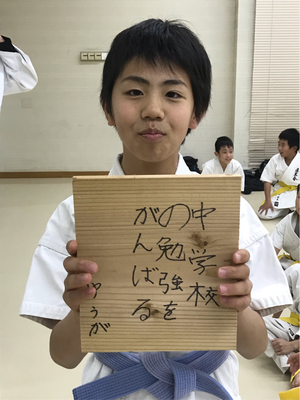 中学校
の勉強を
がんばる
ゆうが